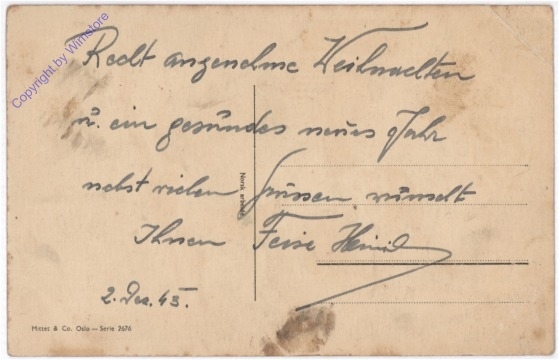 Copyright by Winstore
Recht angenehme Weihnachten
u. ein gesundes neues Jahr
nebst vielen Grüssen wünscht
Ihnen
2. Dez. 43.
Norsk arbeide
Mittet & Co. Oslo — Serie 2676